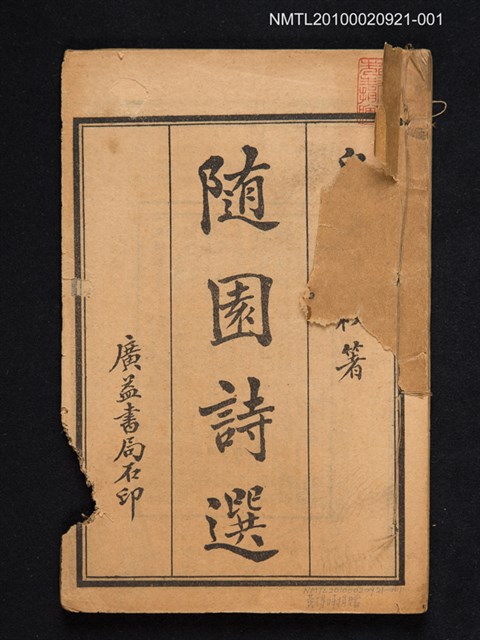 NMTL20100020921-001
著
随園詩選
廣益書局石印